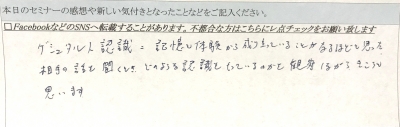 本日のセミナーの感想や新しい気付きとなったことなどをご記入ください。
□Facebookなどのsnsへ転載することがあります。不都合な方はこちらにレ点チェックをお願い致します
ゲシュタルト認識＝記憶と体験から成り立っていることがなるほどと思った
相手の話を聞くとき、どのような認識をしているのかを観察しながらきこうと
思います